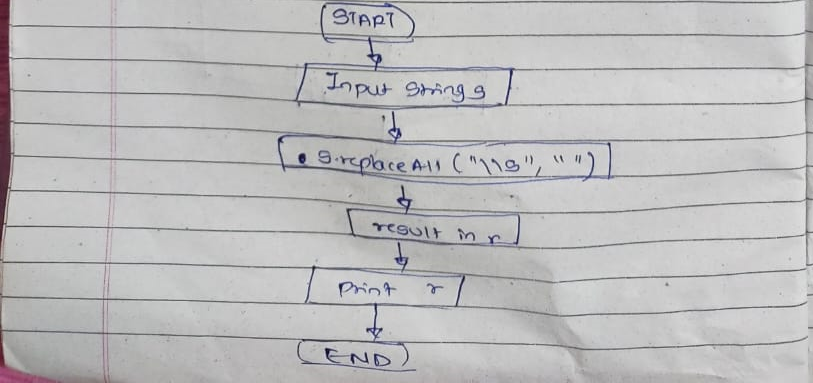 START
Input string s
s.replaceAll ("\\s", "")
result in r
print r
END